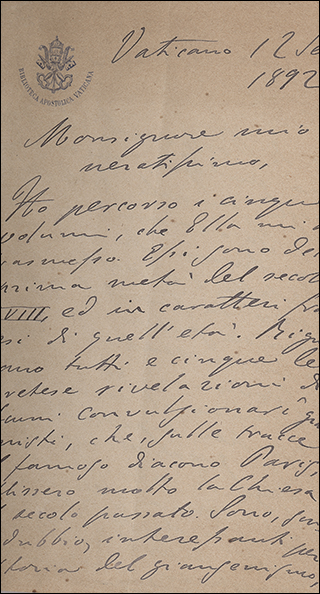 BIBLIOTECA APOSTOLICA VATICANA
Vaticano 12 Se
1892
Monsignore mio
neratissimo,
Ho percorso i cinque
volumi, che Ella mi
rasmesso. Essi sono de
prima metà del secol
XVIII, ed in caratteri fra
si di quell'età. Rigu
no tutti e cinque le
retese rivelazioni di
uni convulsionarj gia
nisti, che, sulle tracce
famoso diacono Paris,
lissero molto la Chiesa
secolo passato. Sono, sen
dubbio, interessanti per
toria del giansenismo,